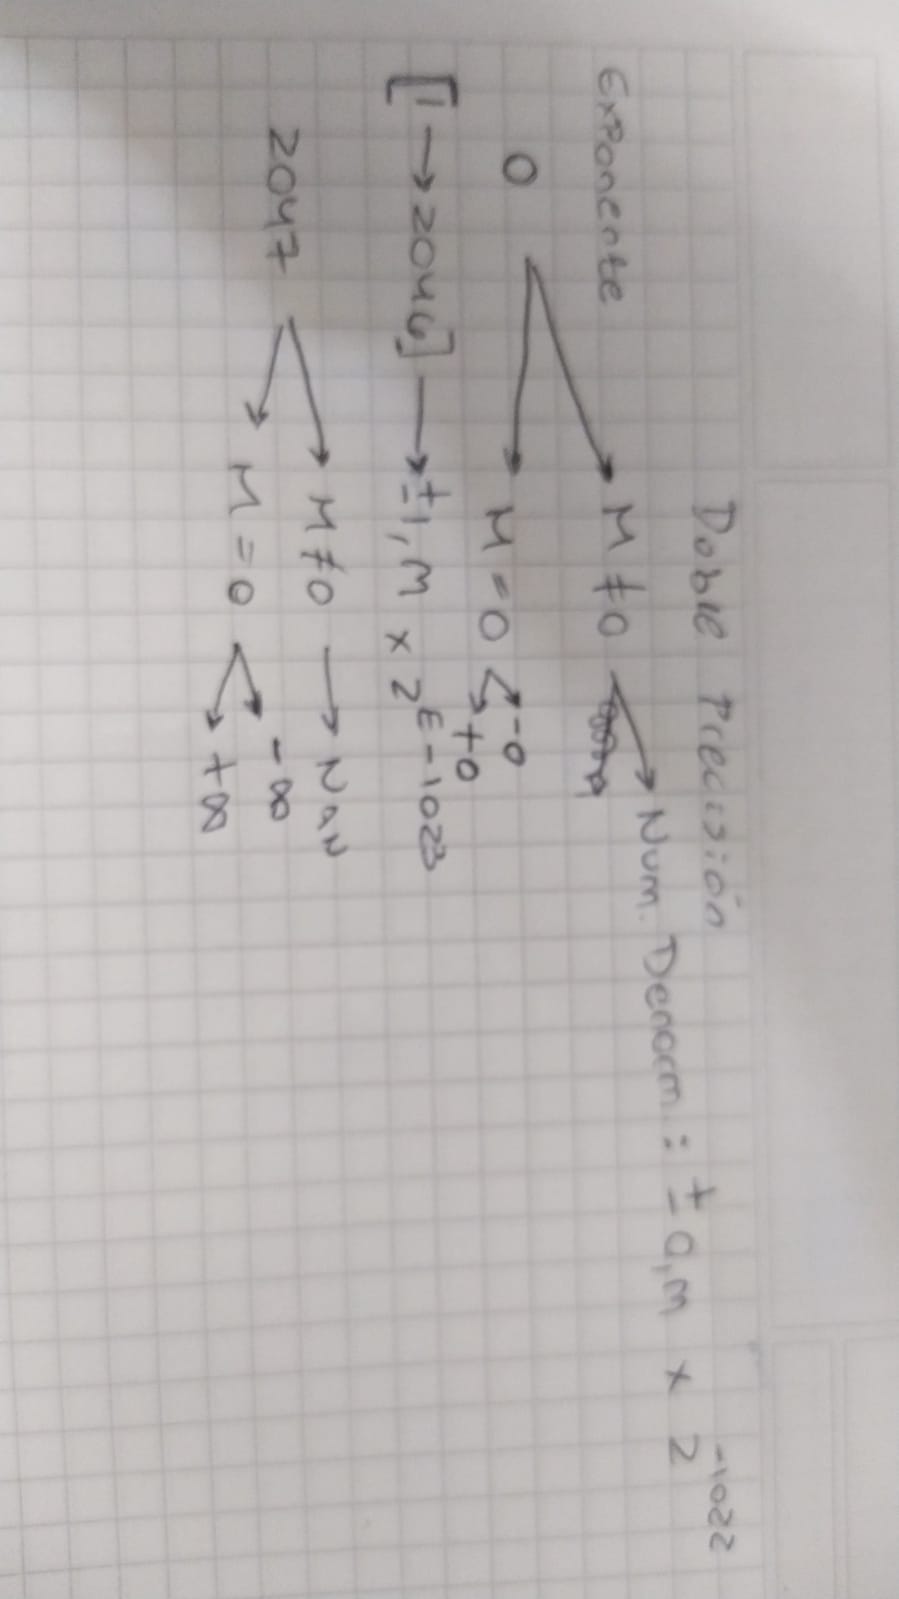 Doble Precisión
Exponente
M ≠ 0 → Num. Denorm : ± 0,m x 2^-1022
0
M = 0 -0
+0
[1 → 2046] → ±1,m x 2^E-1023
M ≠ 0 → NaN
2047
M = 0 -∞
+∞